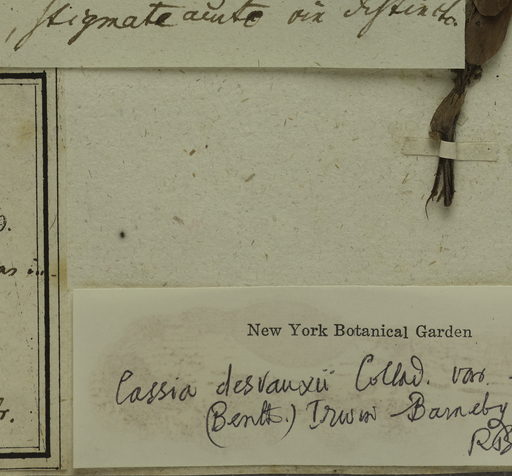 , stigmate acuto vix distincto
as in
New York Botanical Garden
Cassia desvauxii Collad. var.
(Benth.) Irwin Barneby
RB